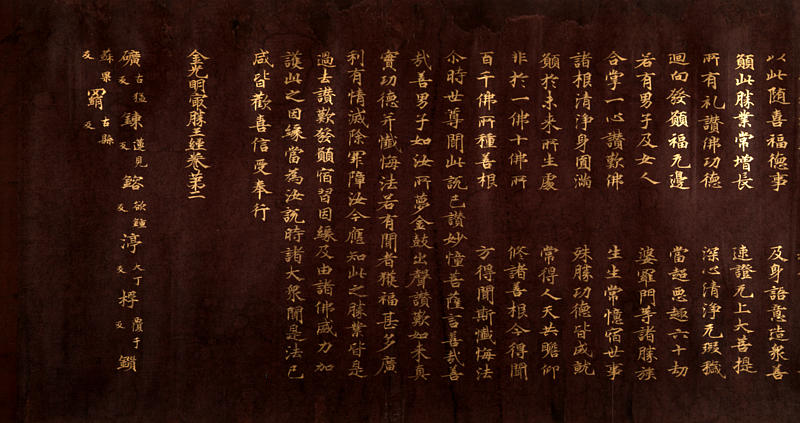 以此随喜福德事　及身語意造衆善
願此勝業常増長　速證无上大菩提
所有礼讚佛功德　深心清淨无瑕穢
迴向發願福无邊　當超惡趣六十劫
若有男子及女人　婆羅門等諸勝族
合掌一心讚歎佛　生生常憶宿世事
諸根清淨身圓滿　殊勝功德皆成就
願於未來所生處　常得人天共瞻仰
非於一佛十佛所　修諸善根今得聞
百千佛所種善根　方得聞斯懺悔法
尒時世尊聞此說已讚妙幢菩薩言善哉善
哉善男子如汝所夢金鼓出聲讚歎如来真
實功德并懺悔法若有聞者獲福甚多廣
利有情滅除罪障汝今應知此之勝業皆是
過去讚歎發願宿習因緣及由諸佛威力加
護此之因緣當為汝說時諸大衆聞是法已
咸皆歡喜信受奉行
金光明最勝王經卷第二
礦古猛反 鍊蓮見反 鎔欲鍾反 渟大丁反 桴覆于反 鎖
蘇果反 罥古縣反